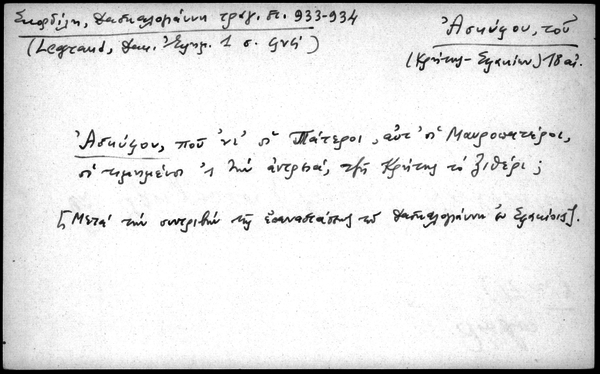 Σκορδίλη, Δασκαλογιάννη τραγ. στ. 933-934
(Legrand, Δακ. Ἔγγλ. 1 σ. ϛνϛ́)
Ἀσκύφου, τοῦ
(Κρήτης - Σφακίων) 18 αἰ.
Ἀσκύφου, ποῦ 'νὶ οἱ Πάτεροι, αὐτ' οἱ Μαυροπατέροι,
οἱ τιμημένοι 'ς τὴν ἀντρειά, τσῆ Κρήτης τὸ ξιθέρι;
[Μετὰ τὴν συντριβὴν τῆς ἐπαναστάσεως τοῦ Δασκαλογιάννη ἐν Σφακίοις].